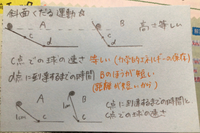 斜面くだる運動☆
A B 高さ等しい
C d
C点での球の速さ 等しい(力学的エネルギーの保存)
dに到達するまでの時間 Bのほうが短い
(距離が短いから)
A B C点に到達するまでの時間と
1m 1m C点での球の速さ
C C